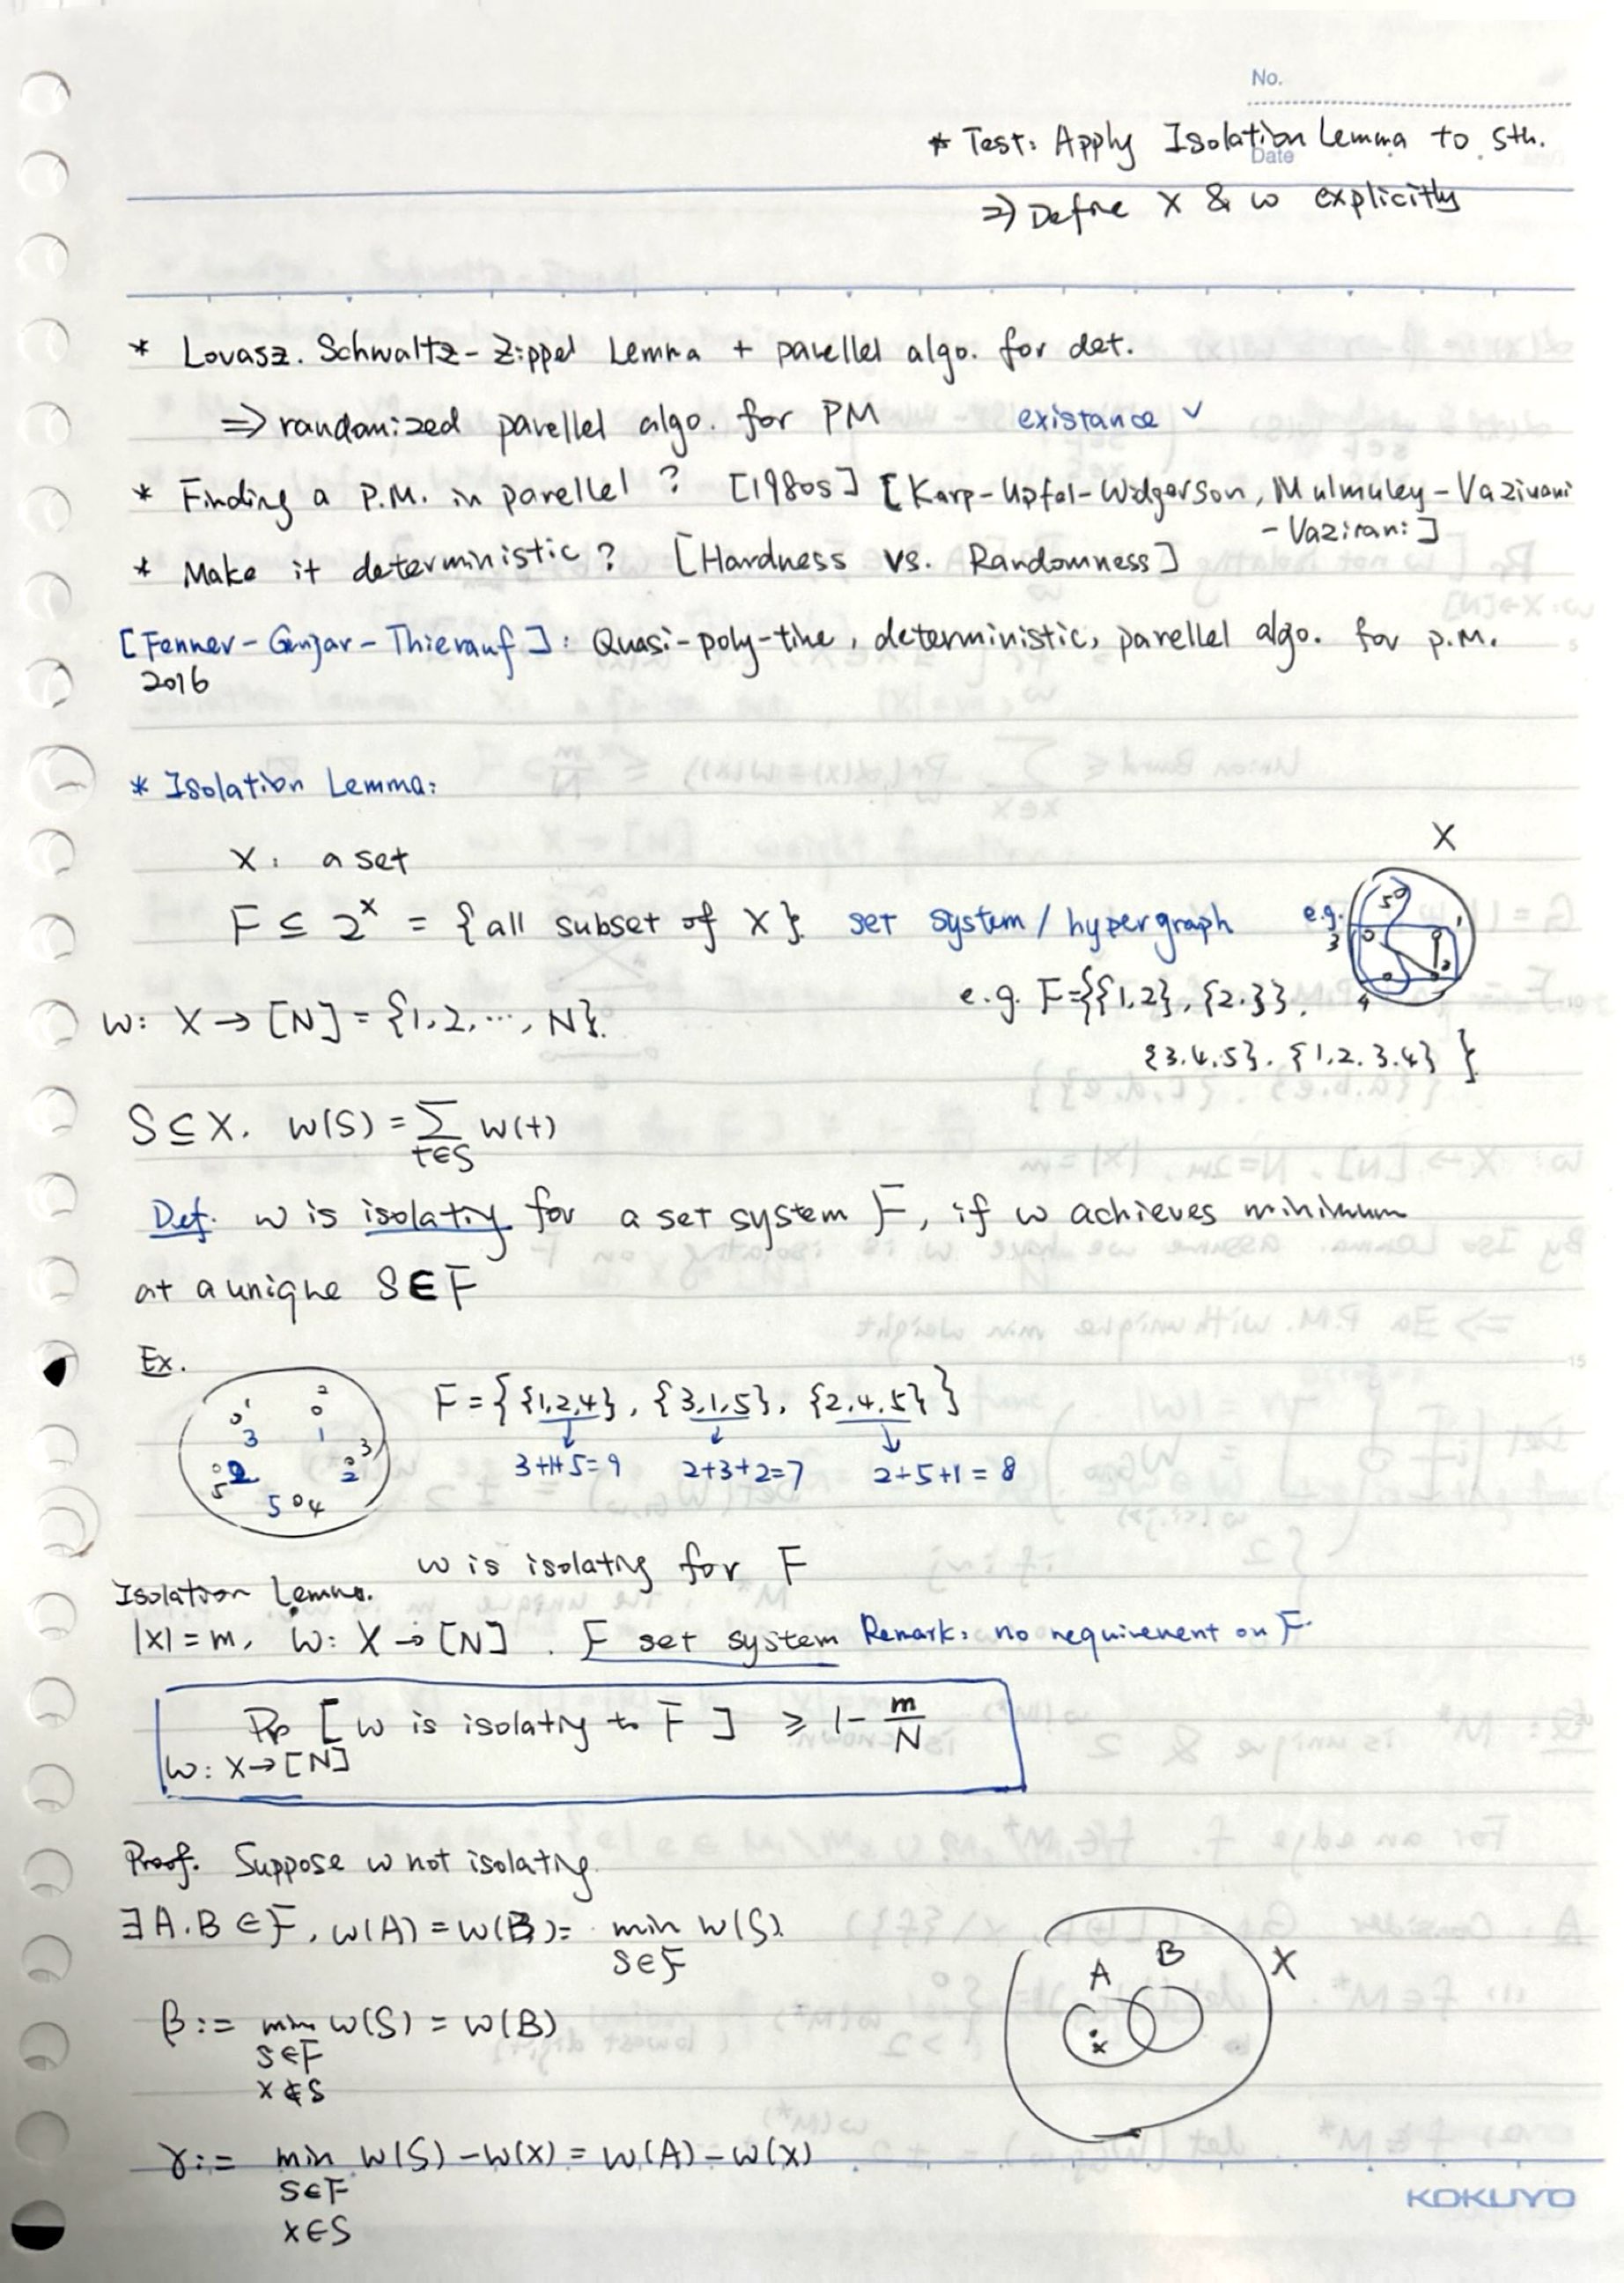 No.
* Test: Apply Isolation Lemma to sth.
Date
⇒ Define X & w explicitly
* Lovasz. Schwaltz-Zippel Lemma + parellel algo. for det.
⇒ randomized parellel algo. for PM existance ✓
* Finding a P.M. in parellel ? [1980s] [Karp-Upfal-Widgerson, Mulmuley-Vazirani
-Vazirani]
* Make it deterministic ? [Hardness vs. Randomness]
[Fenner-Gurjar-Thierauf]: Quasi-poly-time, deterministic, parellel algo. for p.M.
2016
* Isolation Lemma:
X
X: a set
F ⊆ 2^X = {all subset of X}. set system / hypergraph e.g.
5 1 3 2 4
e.g. F={{1,2}, {2.}},
w: X → [N] = {1,2,...,N}.
{3.4.5}. {1.2.3.4} }
S ⊆ X. w(S) = Σ_{t∈S} w(t)
Def. w is isolating for a set system F, if w achieves minimum
at a unique S∈F
Ex.
F = { {1,2,4}, {3,1,5}, {2,4,5} }
1 2 3 1 3 5 2 2 5 4
3+1+5=9 2+3+2=7 2+5+1=8
w is isolating for F
Isolation Lemma.
|X|=m, w: X → [N]. F set system Remark: no requirement on F.
Pr [w is isolating to F] ≥ 1 - m/N
w: X→[N]
Proof. Suppose w not isolating.
∃A.B ∈ F, w(A) = w(B) = min w(S).
S∈F
A B X
x
β := min w(S) = w(B)
S∈F
x∉S
γ := min w(S) - w(x) = w(A) - w(x)
S∈F
x∈S
KOKUYO